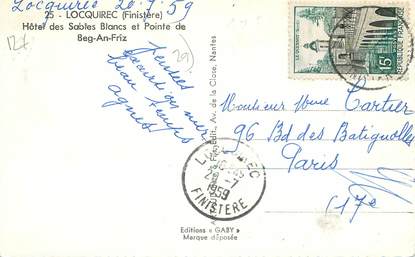 Locquirec 20.7.59
25 - LOCQUIREC (Finistère)
Hôtel des Sables Blancs et Pointe de
Beg-An-Friz
12f
29
Tendres
beau temps
agnès
Artaud Frères, Edit., Av. de la Close, Nantes
15F
REPUBLIQUE FRANÇAISE
Monsieur Mme Cartier
96 Bd des Batignolles
Paris
17e
LOCQUIREC
1959
FINISTERE
Editions « GABY »
Marque déposée